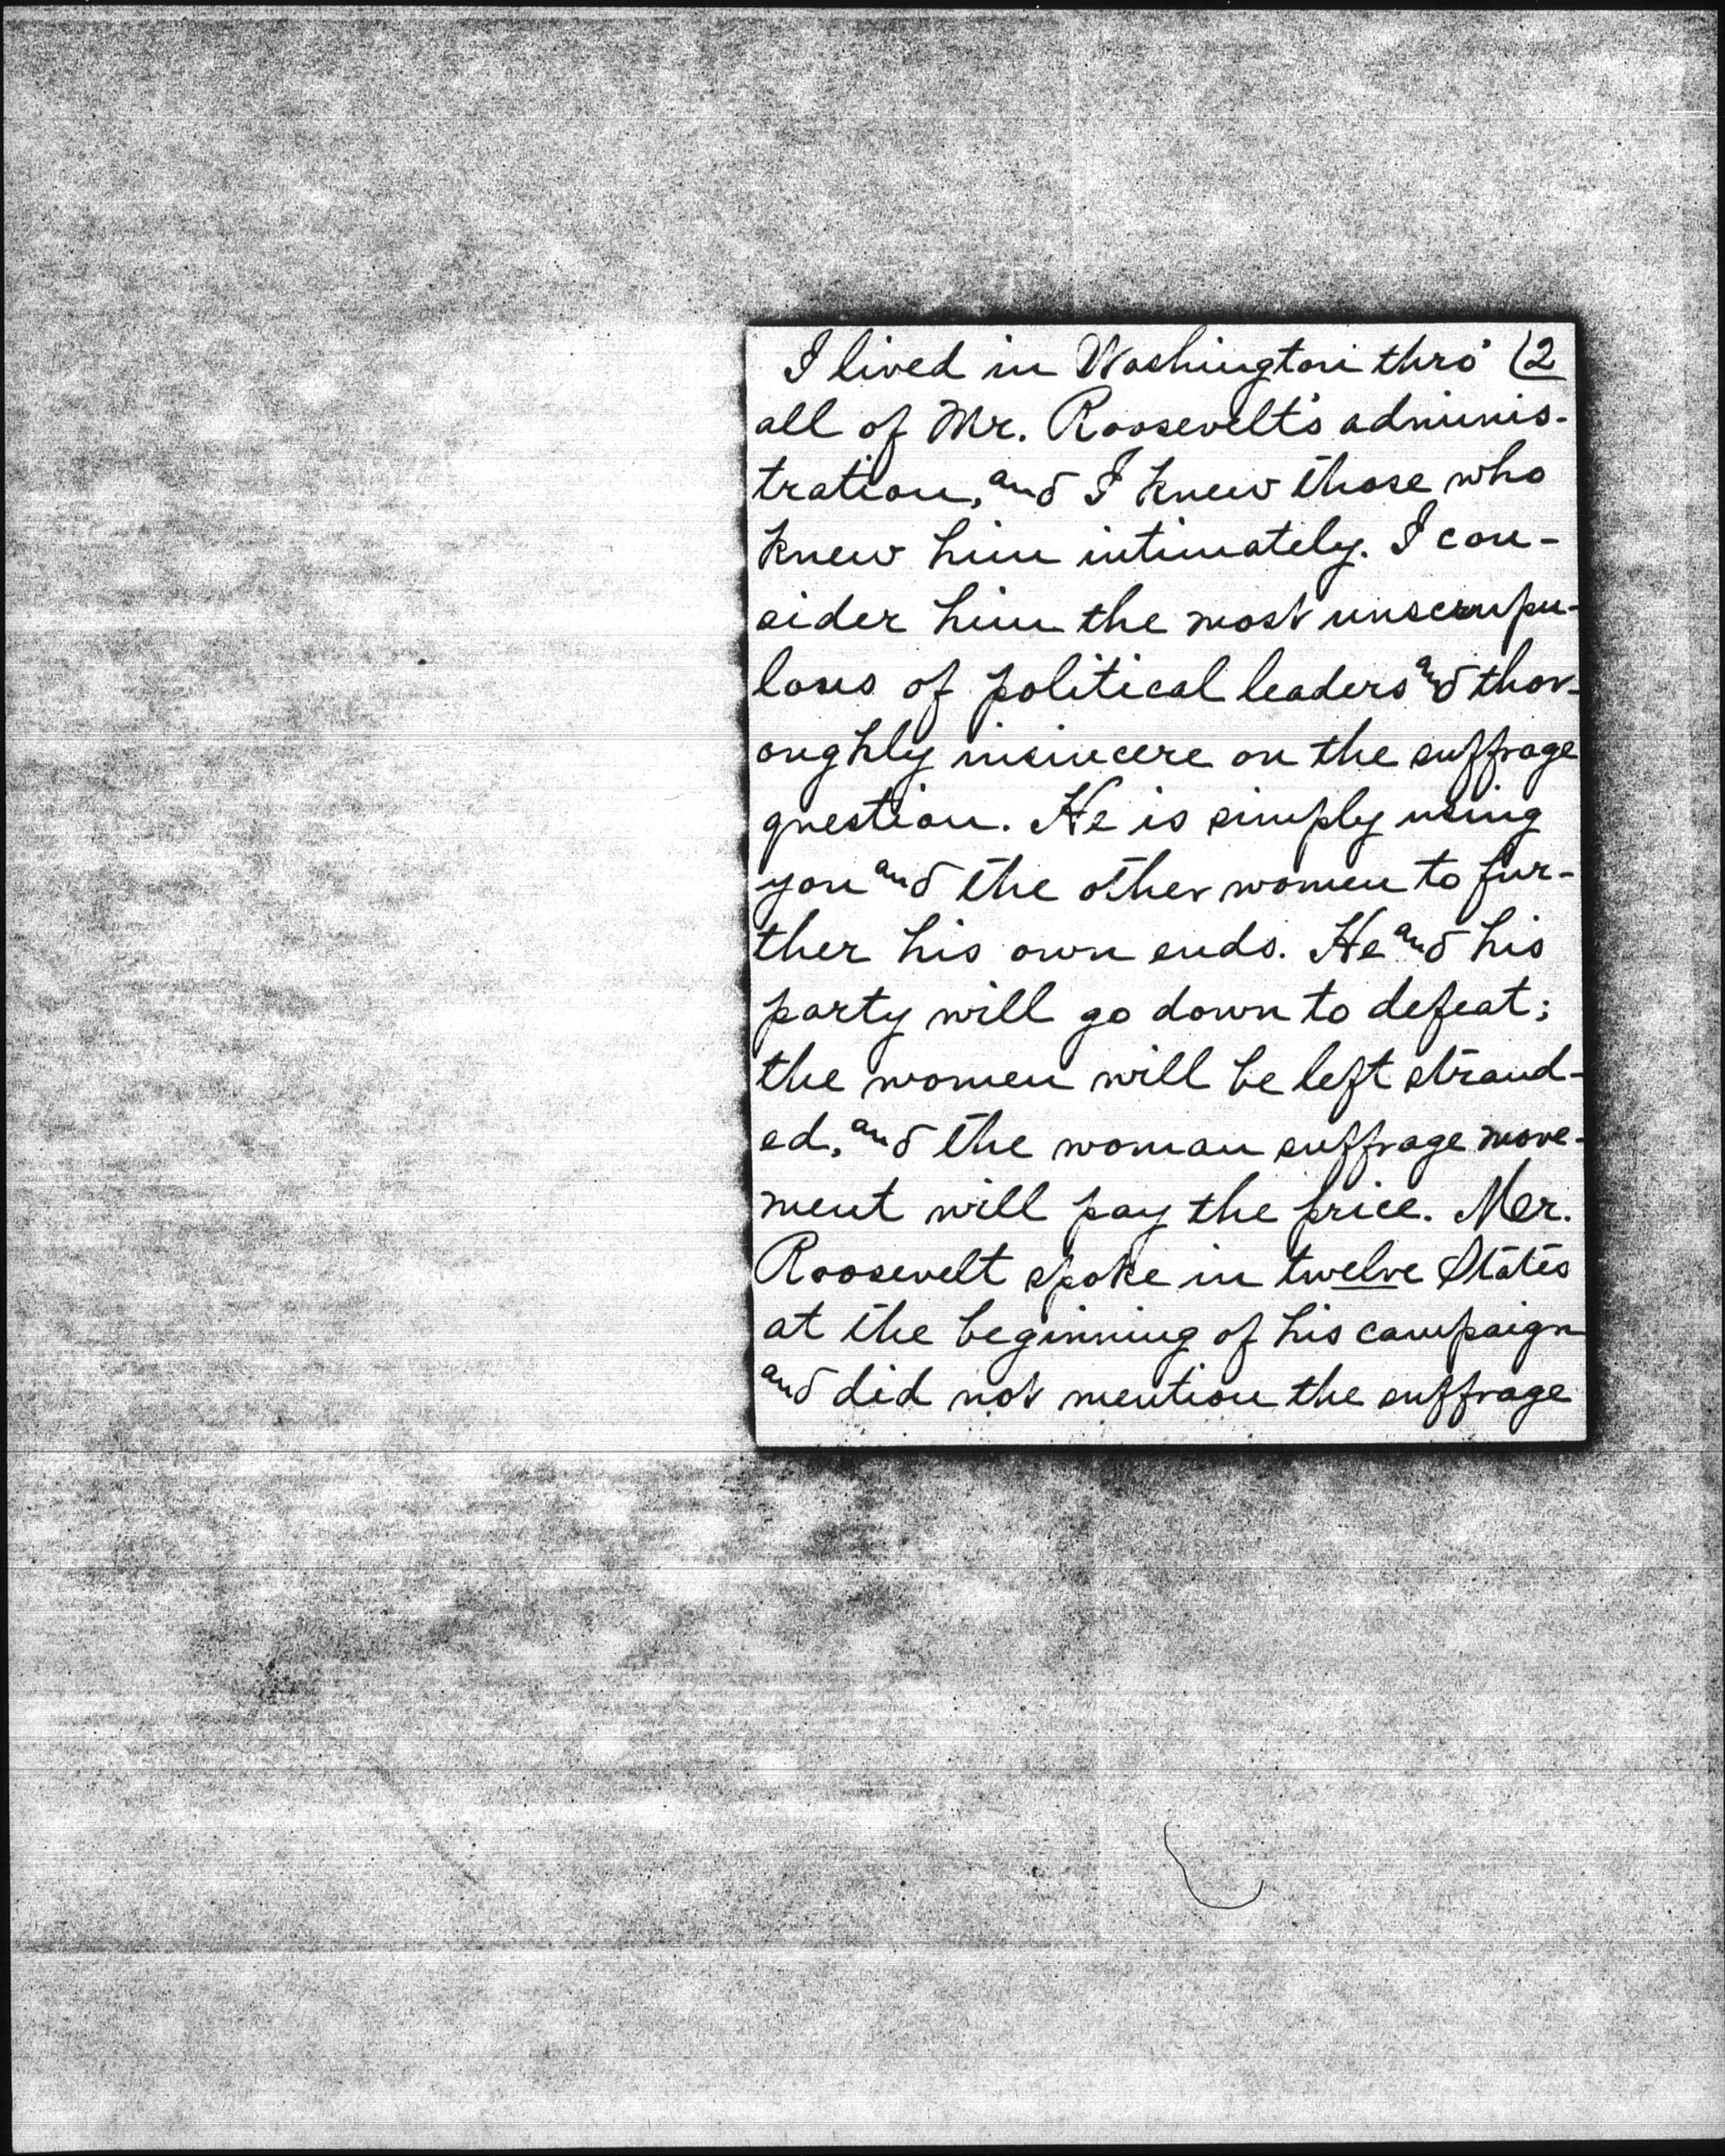 I lived in Washington thro' (2
all of Mr. Roosevelt's adminis-
tration, and I knew those who
knew him intimately. I con-
sider him the most unscrupu-
lous of political leaders and thor-
oughly insincere on the suffrage
question. He is simply using
you and the other women to fur-
ther his own ends. He and his
party will go down to defeat;
the women will be left strand-
ed, and the woman suffrage move-
ment will pay the price. Mr.
Roosevelt spoke in twelve States
at the beginning of his campaign
and did not mention the suffrage